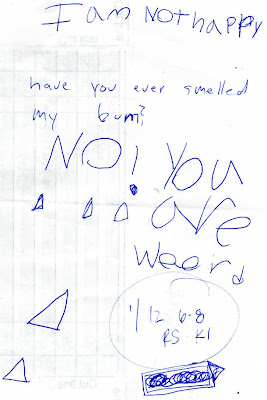 I am NOt happy
have you ever smelled
my bum?
NO! YOU
are
weerd
1/12 6-8
RS K1